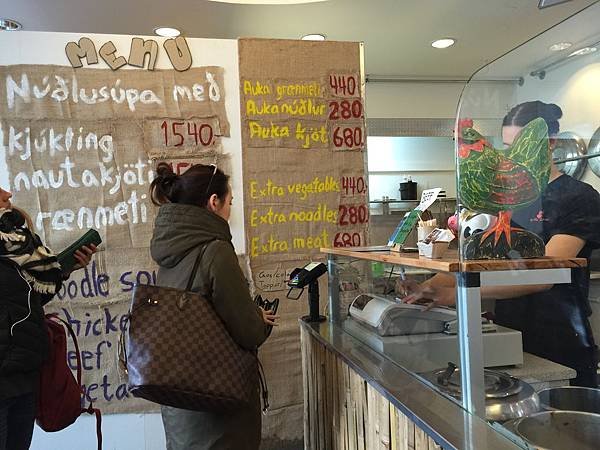 MENU
Núðlusúpa með
kjúkling 1540.-
nautakjöti
grænmeti
Auka grænmeti 440.-
Auka núðlur 280.-
Auka kjöt 680.-
Extra vegetables 440.-
Extra noodles 280.-
Extra meat 680.-
noodle sou
chicke
Beef